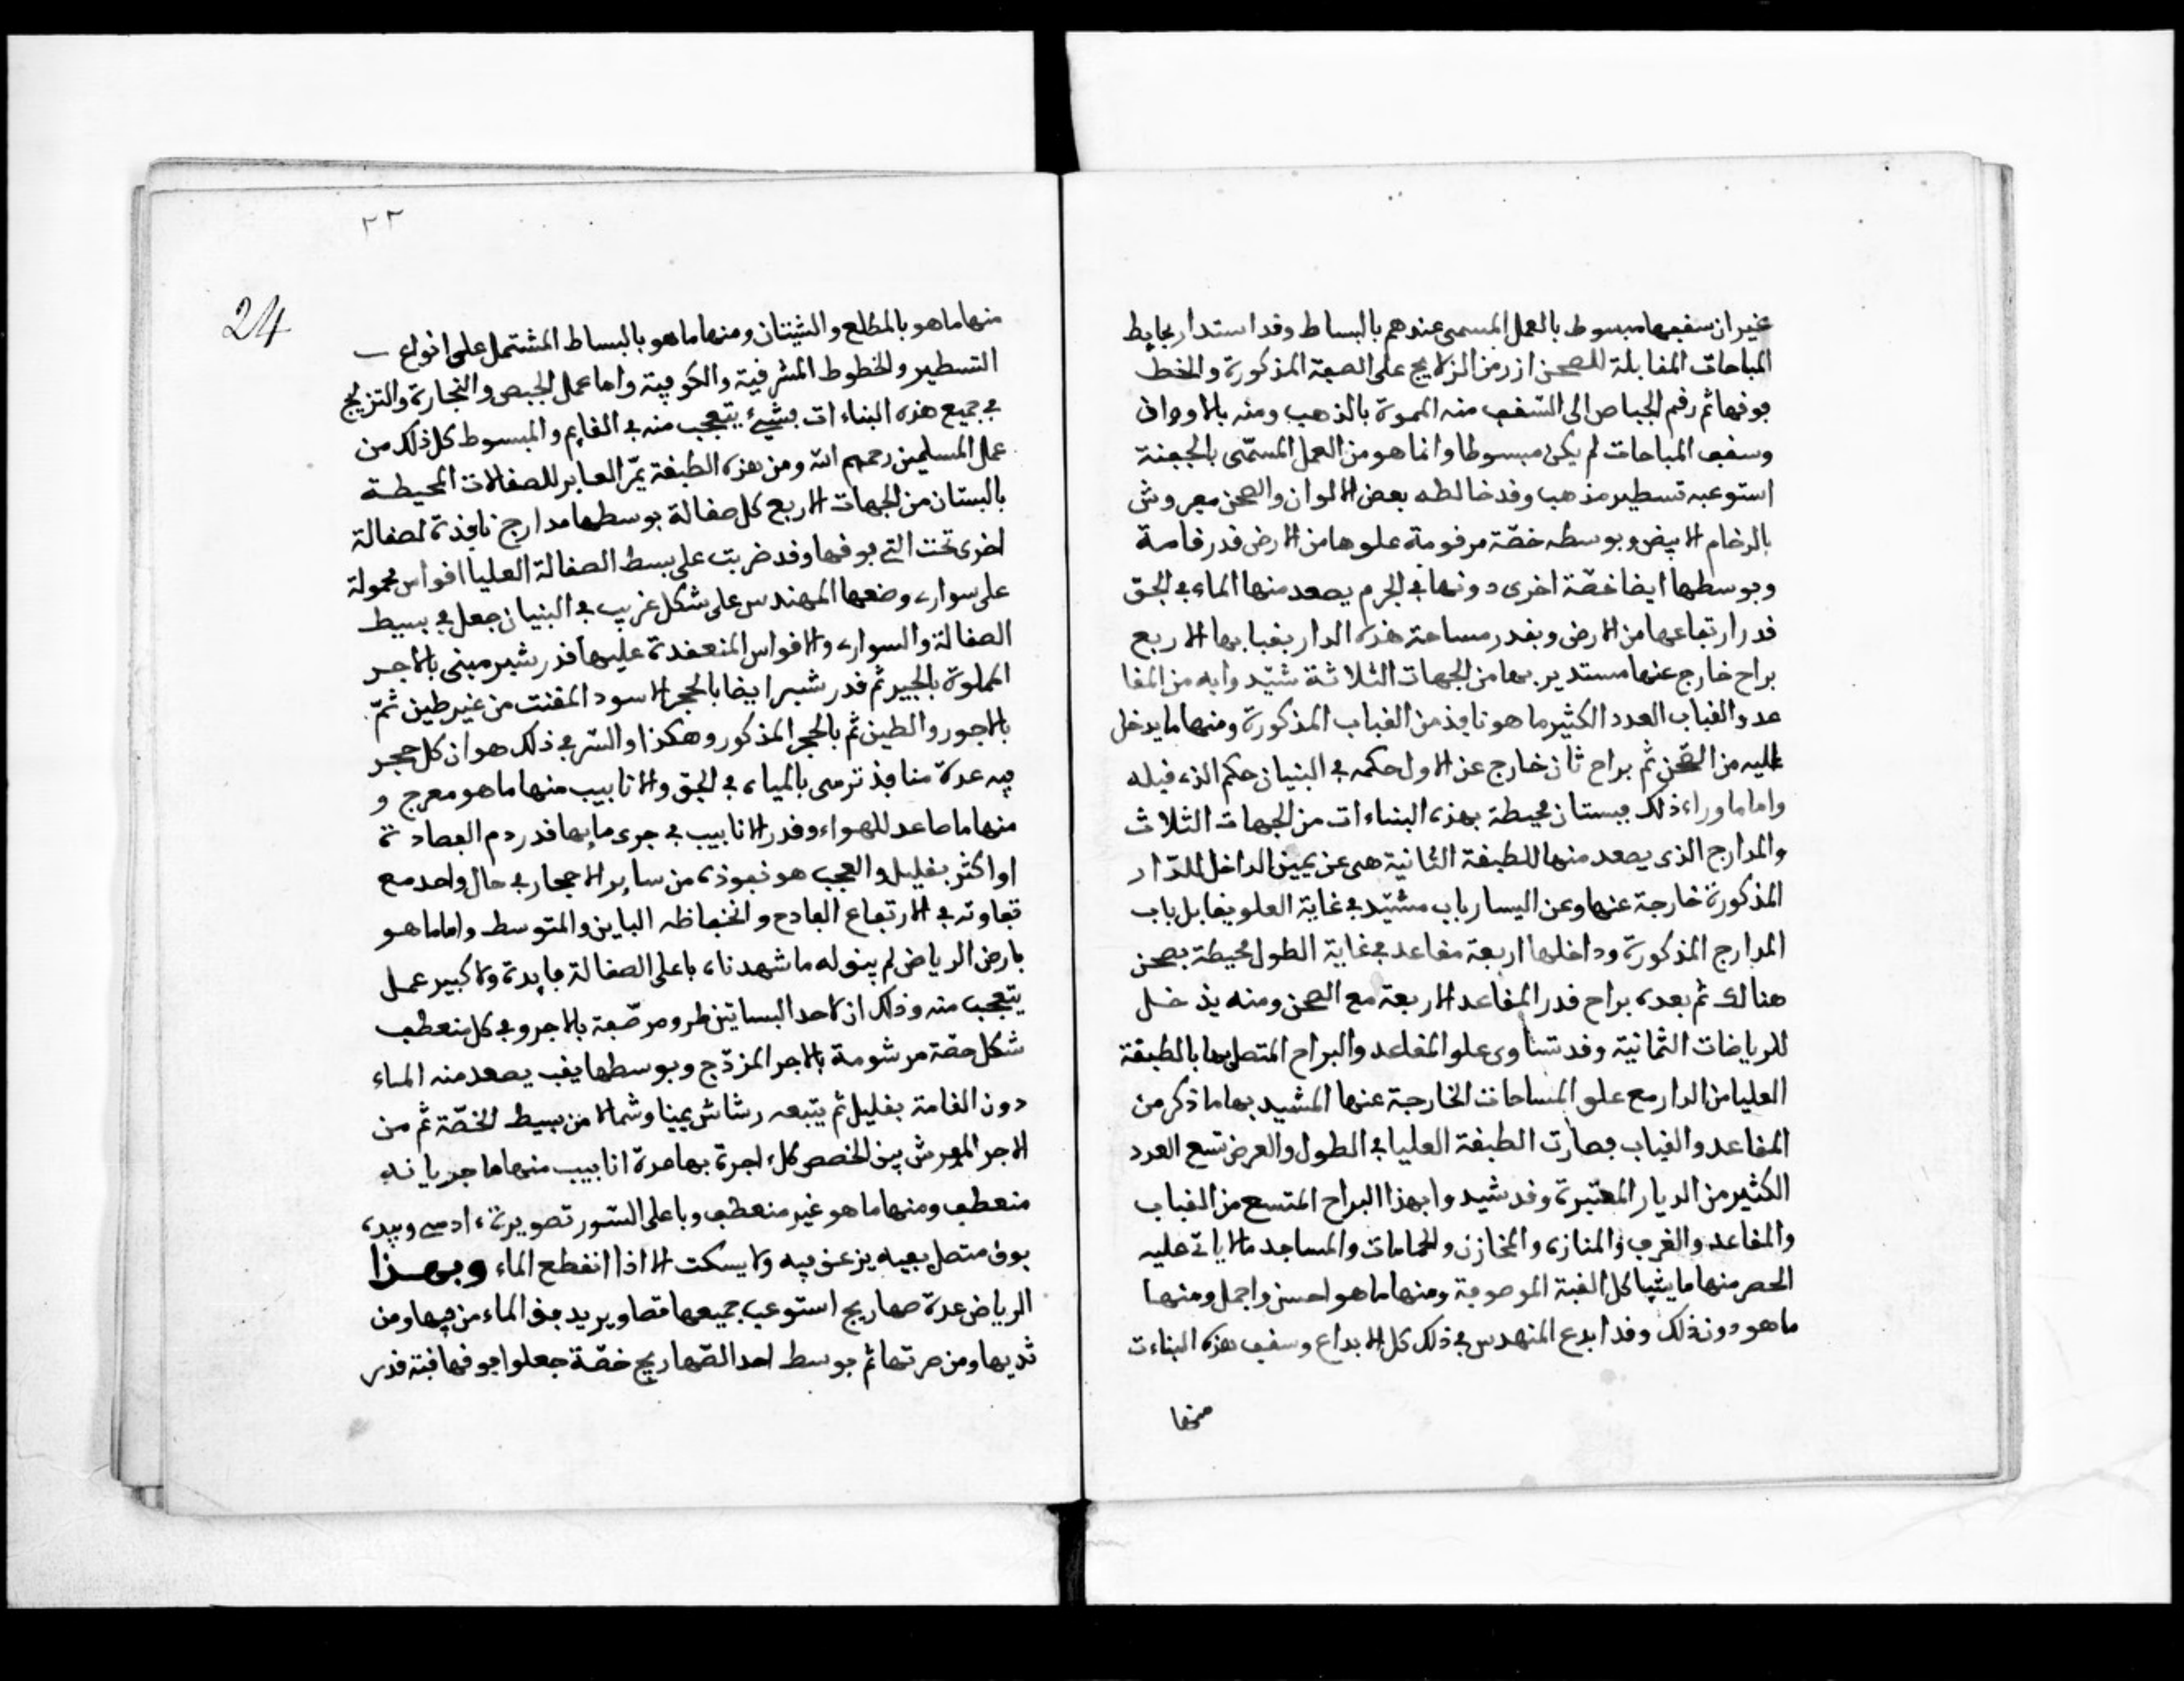 غير ان سقفها مبسوط بالعمل المسمى عندهم بالبساط وقد استدار بحايط
المباحات المقابلة للصحن ازر من الزلايج على الصفة المذكورة والخط
فوقها ثم رقم الجباص الى السقف منه المموة بالذهب ومنه بالاوراق
وسقف المباحات لم يكن مبسوطا وانما هو من العمل المسمّى بالجفنة
استوعبه تسطير مذهب وقد خالطه بعض الالوان والصحن مفروش
بالرخام الابيض وبوسطه خصّة مرفومة علوها من الارض قدر قامة
وبوسطها ايضا خصّة اخرى دونها في الجرم يصعد منها الماء في الجوّ
قدر ارتفاعها من الارض وبقدر مساحة هذه الدار بقبابها الاربع
براح خارج عنها مستدير بها من الجهات الثلاثة شيّد وابه من المقا
عد والقباب العدد الكثير ما هو نافذ من القباب المذكورة ومنها ما يدخل
اليه من الصّحن ثم براح ثان خارج عن الاول حكمه في البنيان حكم الذي قبله
واما ما وراء ذلك فبستان محيطة بهذه البناءات من الجهات الثلاث
والمدارج الذى يصعد منها للطبقة الثانية هى عن يمين الداخل للدّار
المذكورة خارجة عنها وعن اليسار باب مشيّد في غاية العلو يقابل باب
المدارج المذكورة وداخلها اربعة مقاعد في غاية الطول محيطة بصحن
هنالك ثم بعده براح قدر المقاعد الاربعة مع الصحن ومنه يدخل
للرياضات الثمانية وقد تساوى علو المقاعد والبراح المتصل بها بالطبقة
العليا من الدار مع علو المساحات الخارجة عنها المشيد بها ما ذكر من
المقاعد والقباب فصارت الطبقة العليا في الطول والعرض تسع العدد
الكثير من الديار المعتبرة وقد شيد وا بهذا البراح المتسع من القباب
والمقاعد والغرف والمنازه والمخازن والحمامات والمساجد ما لا ياتى عليه
الحصر منها ما يشاكل القبة الموصوفة ومنها ما هو احسن واجمل ومنها
ما هو دون ذلك وقد ابدع المنهدس في ذلك كل الابداع وسقف هذه البناءت
منها
٢٣
24
منها ما هو بالمطلع والشيتان ومنها ما هو بالبساط المشتمل على انواع
التسطير والخطوط المشرقية والكوفية واما عمل الجبص والنجارة والتزليج
في جميع هذه البناءات فشيء يتعجب منه في القايم والمبسوط كل ذلك من
عمل المسلمين رحمهم الله ومن هذه الطبقة يمرّ العابر للصفالات المحيطة
بالبستان من الجهات الاربع كل صفالة بوسطها مدارج نافذة لصفالة
اخرى تحت التي فوقها وقد ضربت على بسط الصفالة العليا اقواس محمولة
على سوارى وضعها المهندس على شكل غريب في البنيان جعل في بسيط
الصفالة والسوارى والاقواس المنعقدة عليها قدر شبر مبنى بالاجر
المملوة بالجير ثم قدر شبر ايضا بالحجر الاسود المفتت من غير طين ثمّ
بالاجور والطين ثم بالحجر المذكور وهكذا والسّر في ذلك هو ان كل حجر
فيه عدة منافذ ترمى بالمياه في الجوّ والانابيب منها ما هو معرج و
منها ما صاعد للهواء وقدر الانابيب في جرى مايها قدر دم الفصادة
او اكثر بقليل والعجب هو نفوذه من ساير الاحجار في حال واحد مع
تفاوته في الارتفاع الفادح وانخفاظه الباين والمتوسط واما ما هو
بارض الرياض لم يبق له ما شهدناه باعلى الصفالة فايدة ولا كبير عمل
يتعجب منه وذلك ان لاحد البساتين طرو مرصّفة بالاجر وفي كل منعطف
شكل خصة مرشومة بالاجر المزدّج وبوسطها يقب يصعد منه الماء
دون القامة بقليل ثم يتبعه رشاش يمينا وشمالا من بسيط الخصّة ثم من
الاجر المفرش بين الخصص كل اجرة بها عدة انابيب منها ما جريانه
منعطف ومنها ما هو غير منعطف وباعلى السّور تصويرة ءادمي وبيده
بوق متصل بفيه يزعق فيه ولا يسكت الا اذا انقطع الماء وبهذا
الرياض عدة صهاريج استوعب جميعها تصاوير يدفق الماء من فيها ومن
ثديها ومن صرتها ثم بوسط احد الصّهاريج خصّة جعلوا فوقها قبة قدر